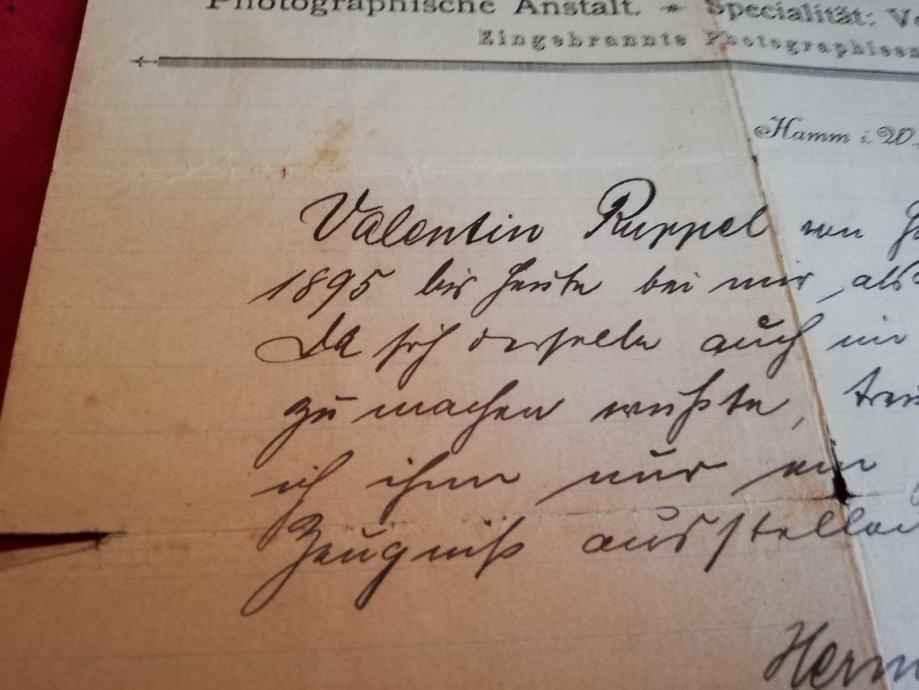 Photographische Anstalt. Specialität: Ve
Eingebrannte Photographieen
Hamm i. W.
Valentin Ruppel von
1895 bis heute bei mir, als
Da sich derselbe auch im
zu machen wußte,
ich ihm nur ein
Zeugniß ausstellen
Herm